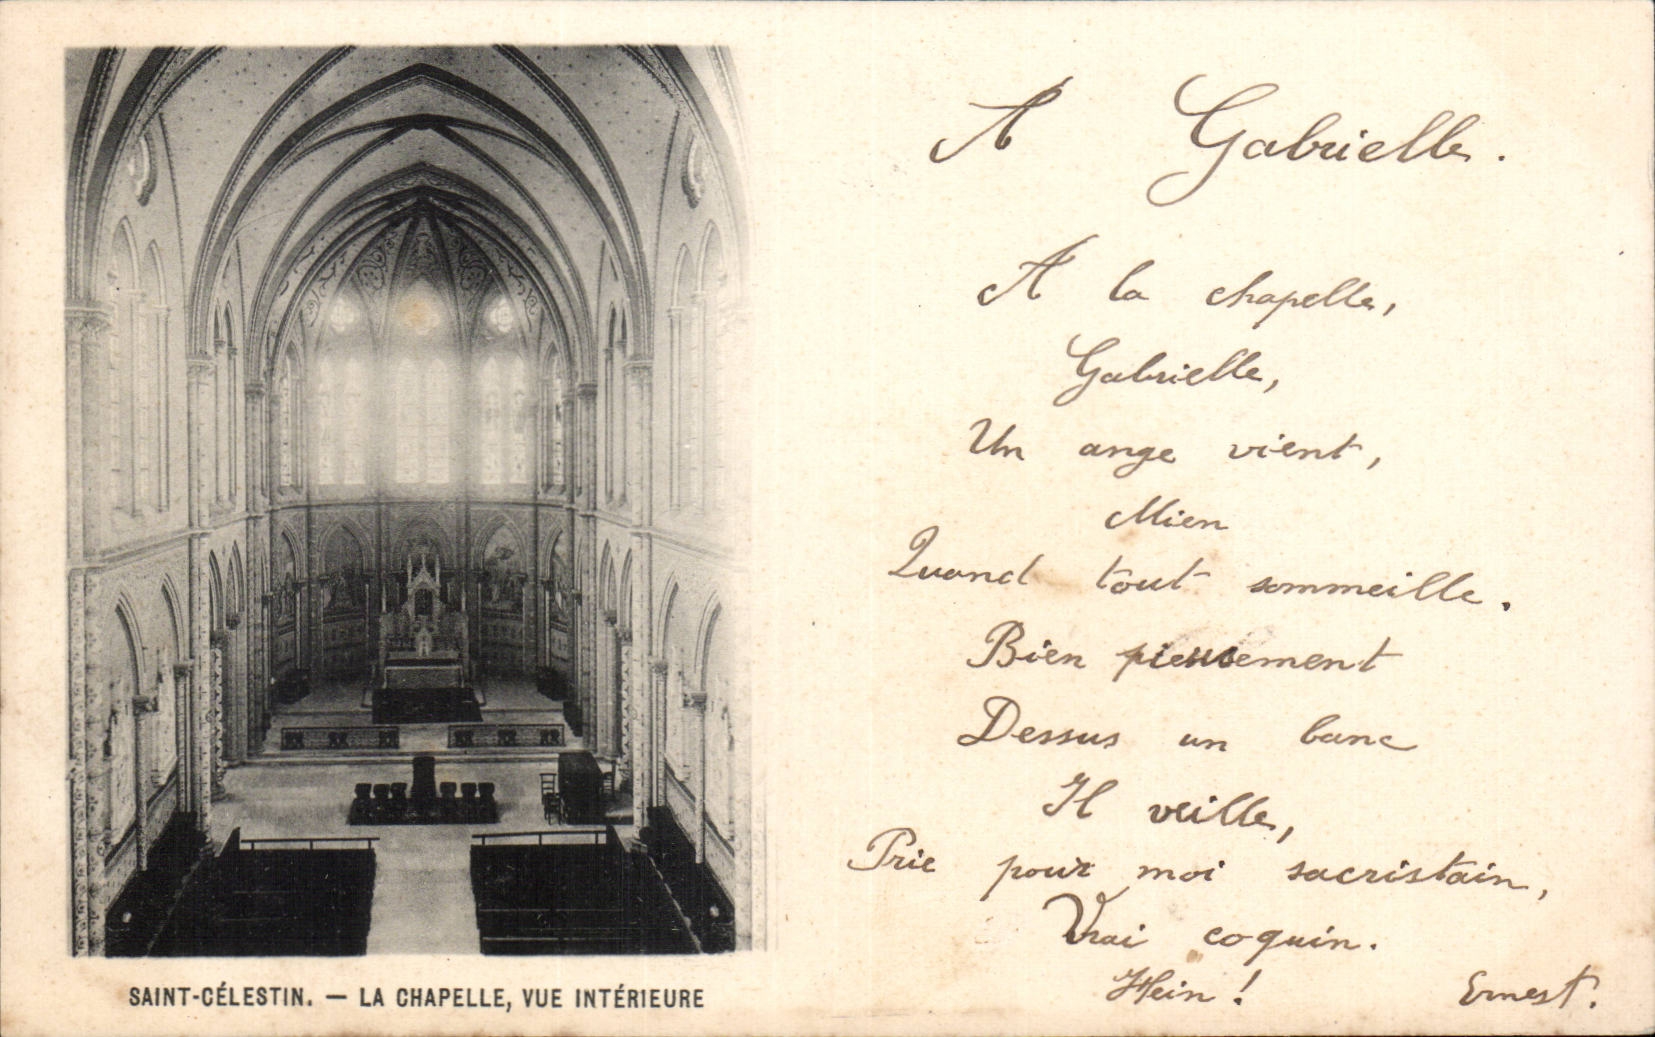 A Gabrielle.
A la chapelle,
Gabrielle,
Un ange vient,
Mien
Quand tout sommeille.
Bien pieusement
Dessus un banc
Il veille,
Prie pour moi sacristain,
Vrai coquin.
Hein !
Ernest.
SAINT-CÉLESTIN. — LA CHAPELLE, VUE INTÉRIEURE